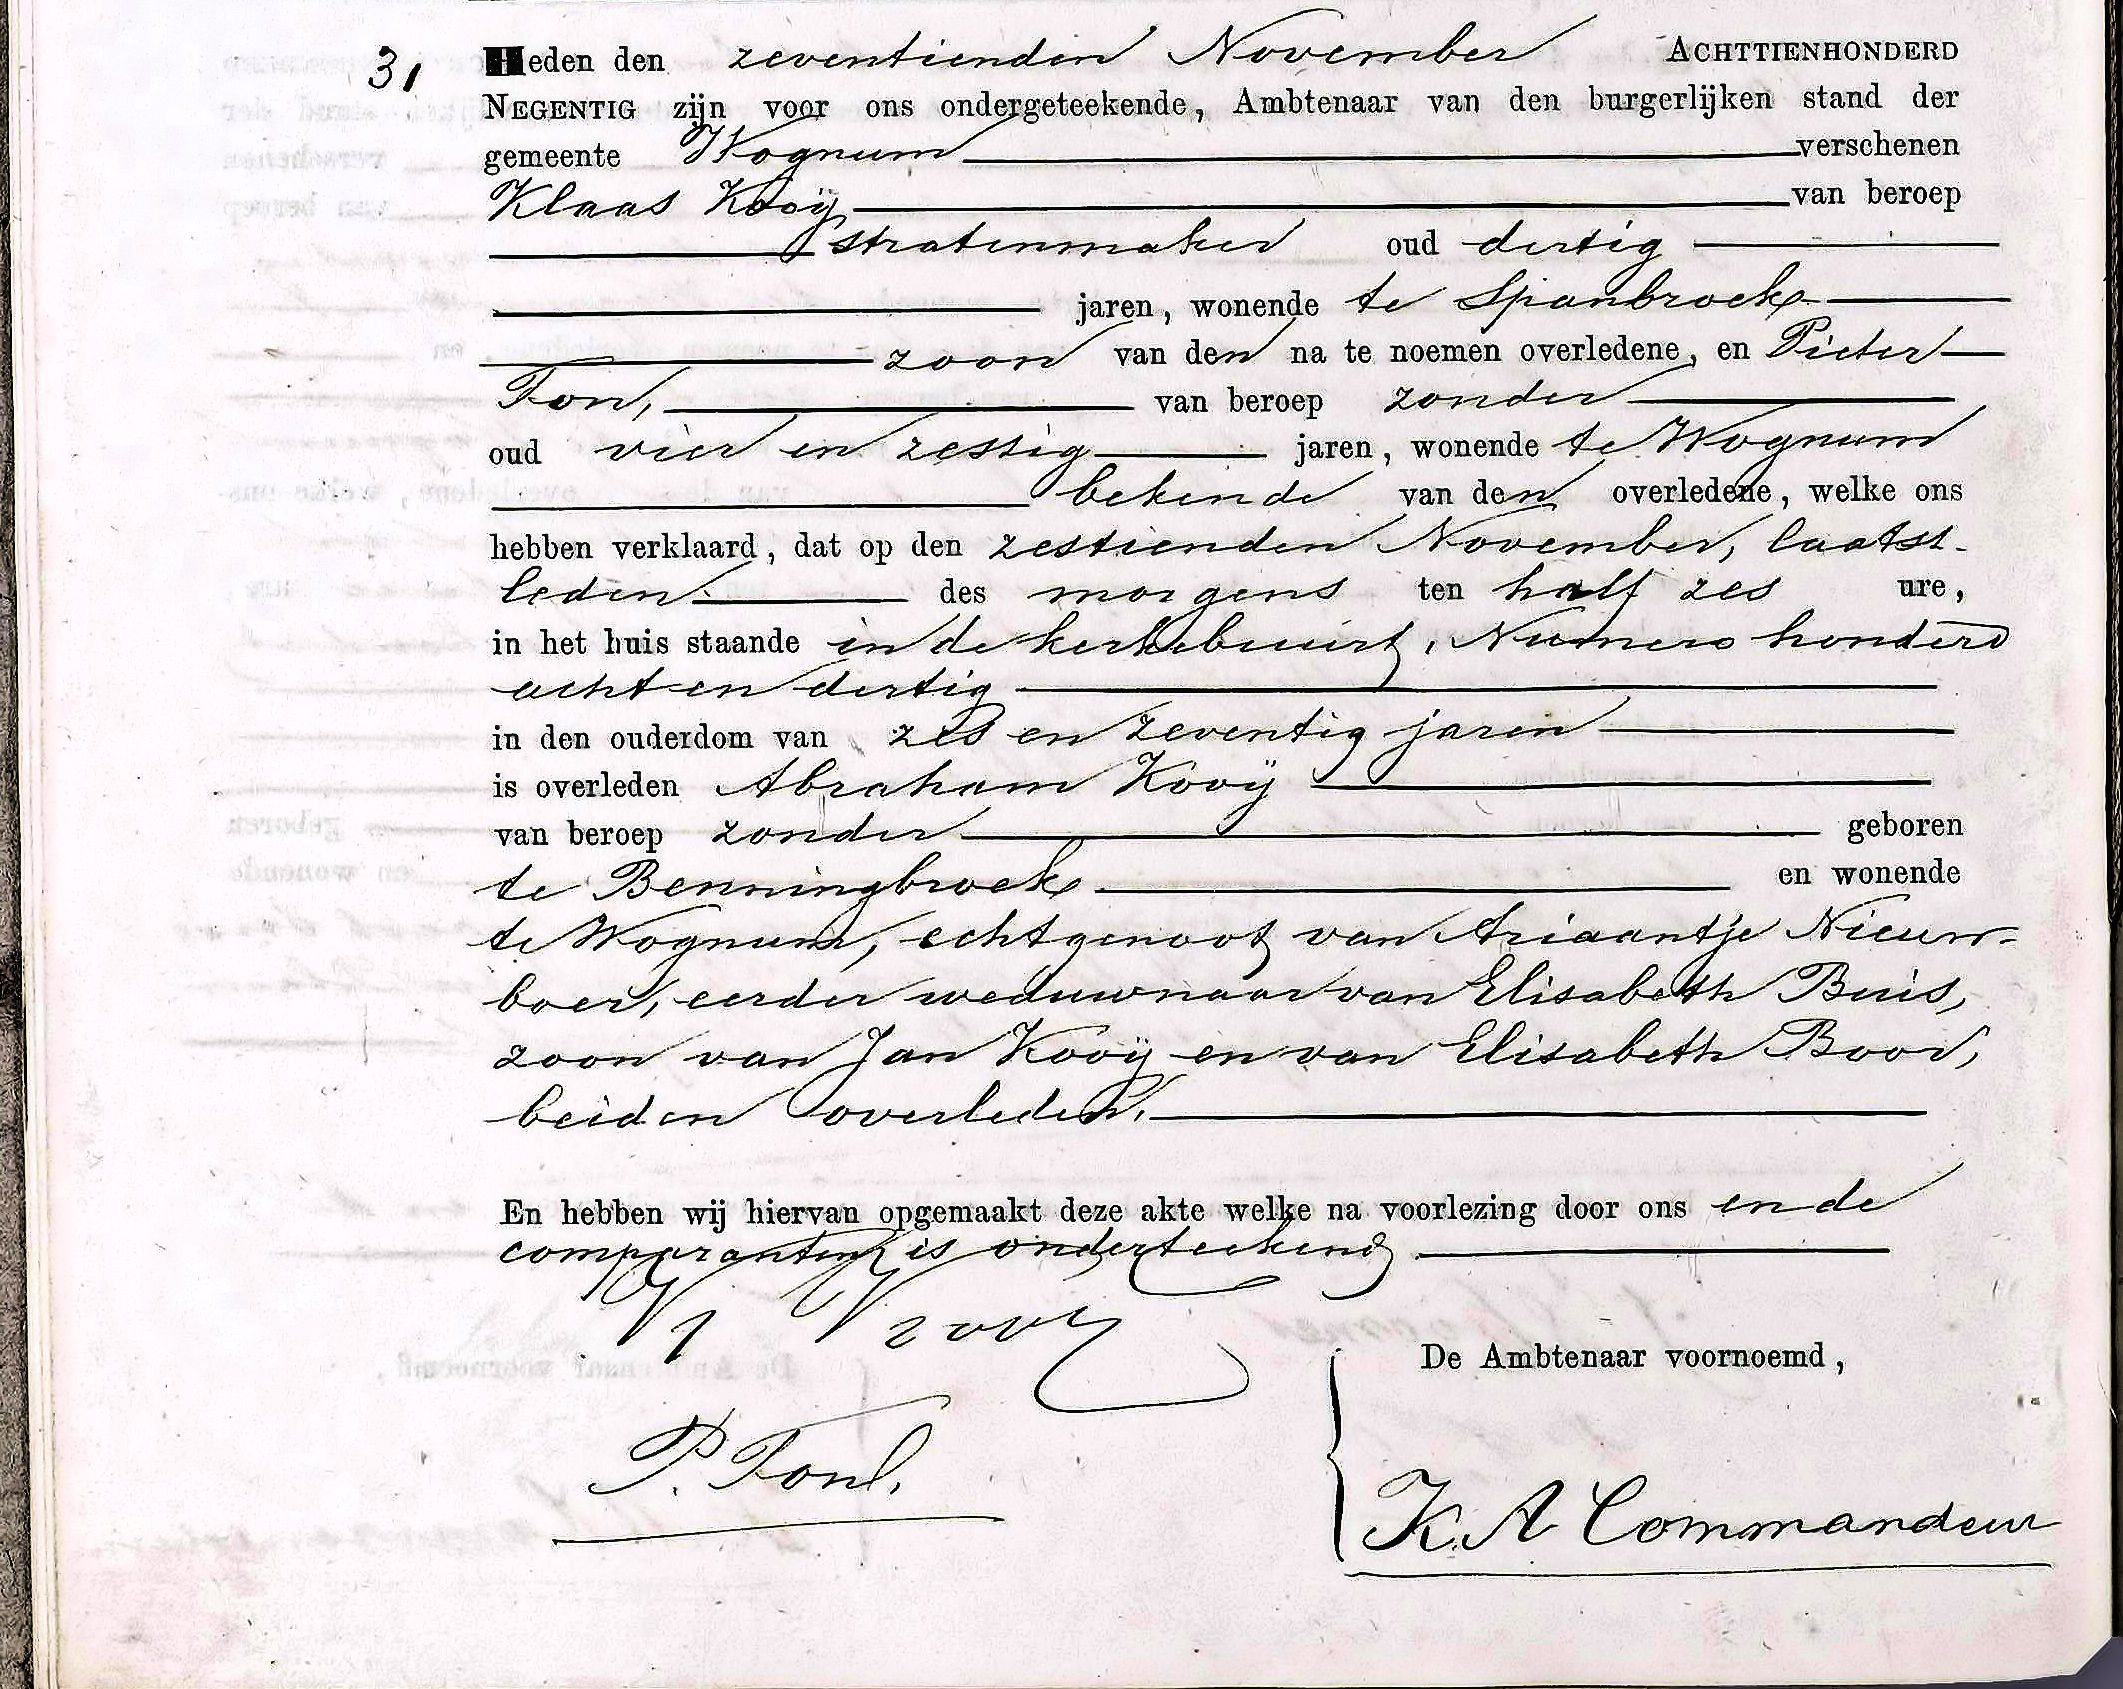 31 Heden den zeventienden November ACHTTIENHONDERD
NEGENTIG zijn voor ons ondergeteekende, Ambtenaar van den burgerlijken stand der
gemeente Wognum verschenen
Klaas Kooij van beroep
stratenmaker oud dertig
jaren, wonende te Spanbroek
zoon van den na te noemen overledene, en Pieter
Fon, van beroep zonder
oud vier en zestig jaren, wonende te Wognum
bekende van den overledene, welke ons
hebben verklaard, dat op den zestienden November, laatst-
leden des morgens ten half zes ure,
in het huis staande in de kerkebuurt, Numero honderd
acht en dertig
in den ouderdom van zes en zeventig jaren
is overleden Abraham Kooij
van beroep zonder geboren
te Benningbroek en wonende
te Wognum, echtgenoot van Ariaantje Nieuw-
boer, eerder weduwnaar van Elisabeth Buis,
zoon van Jan Kooij en van Elisabeth Boor,
beiden overleden.
En hebben wij hiervan opgemaakt deze akte welke na voorlezing door ons en de
comparanten is onderteekend
K Kooij
De Ambtenaar voornoemd,
P. Fon
K A Commandeur